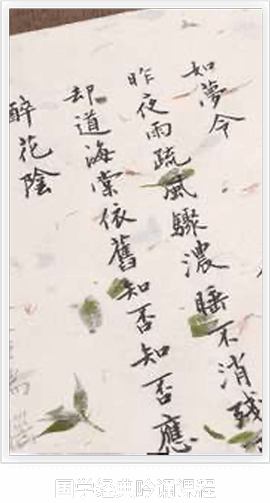 如夢令
昨夜雨疏風驟濃睡不消殘
却道海棠依舊知否知否應
醉花陰
国学经典吟诵课程